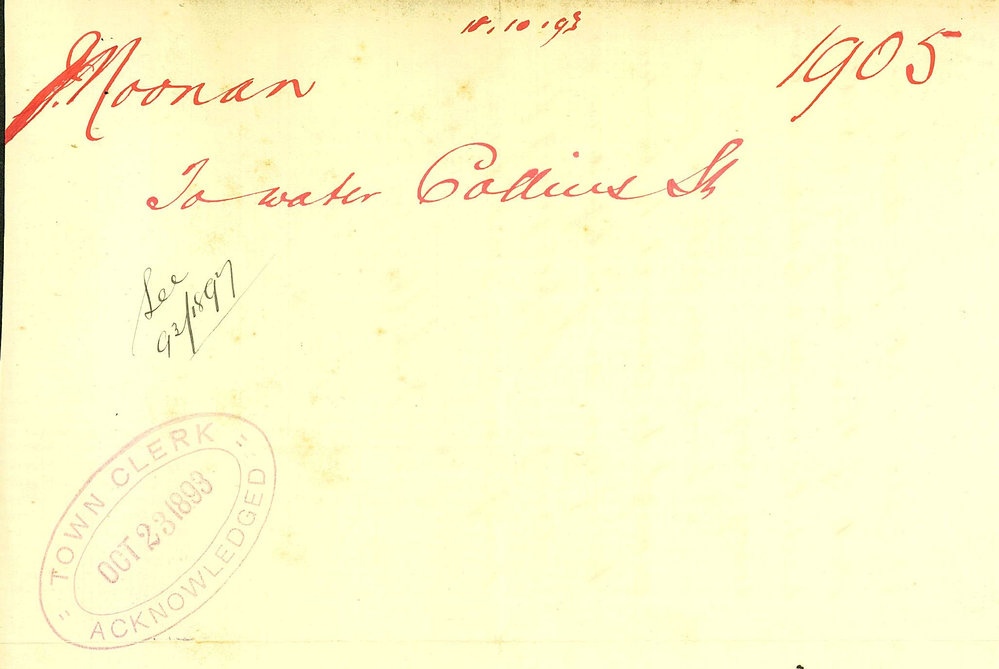 18.10.93
J. Noonan 1905
To water Collins St
See
93/1897
" TOWN CLERK "
OCT 23 1893
ACKNOWLEDGED